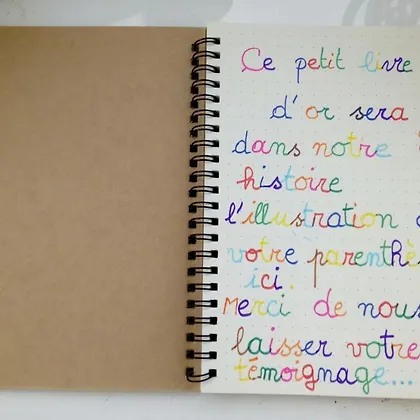 Ce petit livre
d'or sera
dans notre
histoire
l'illustration
votre parenthè
ici.
Merci de nous
laisser votre
témoignage...